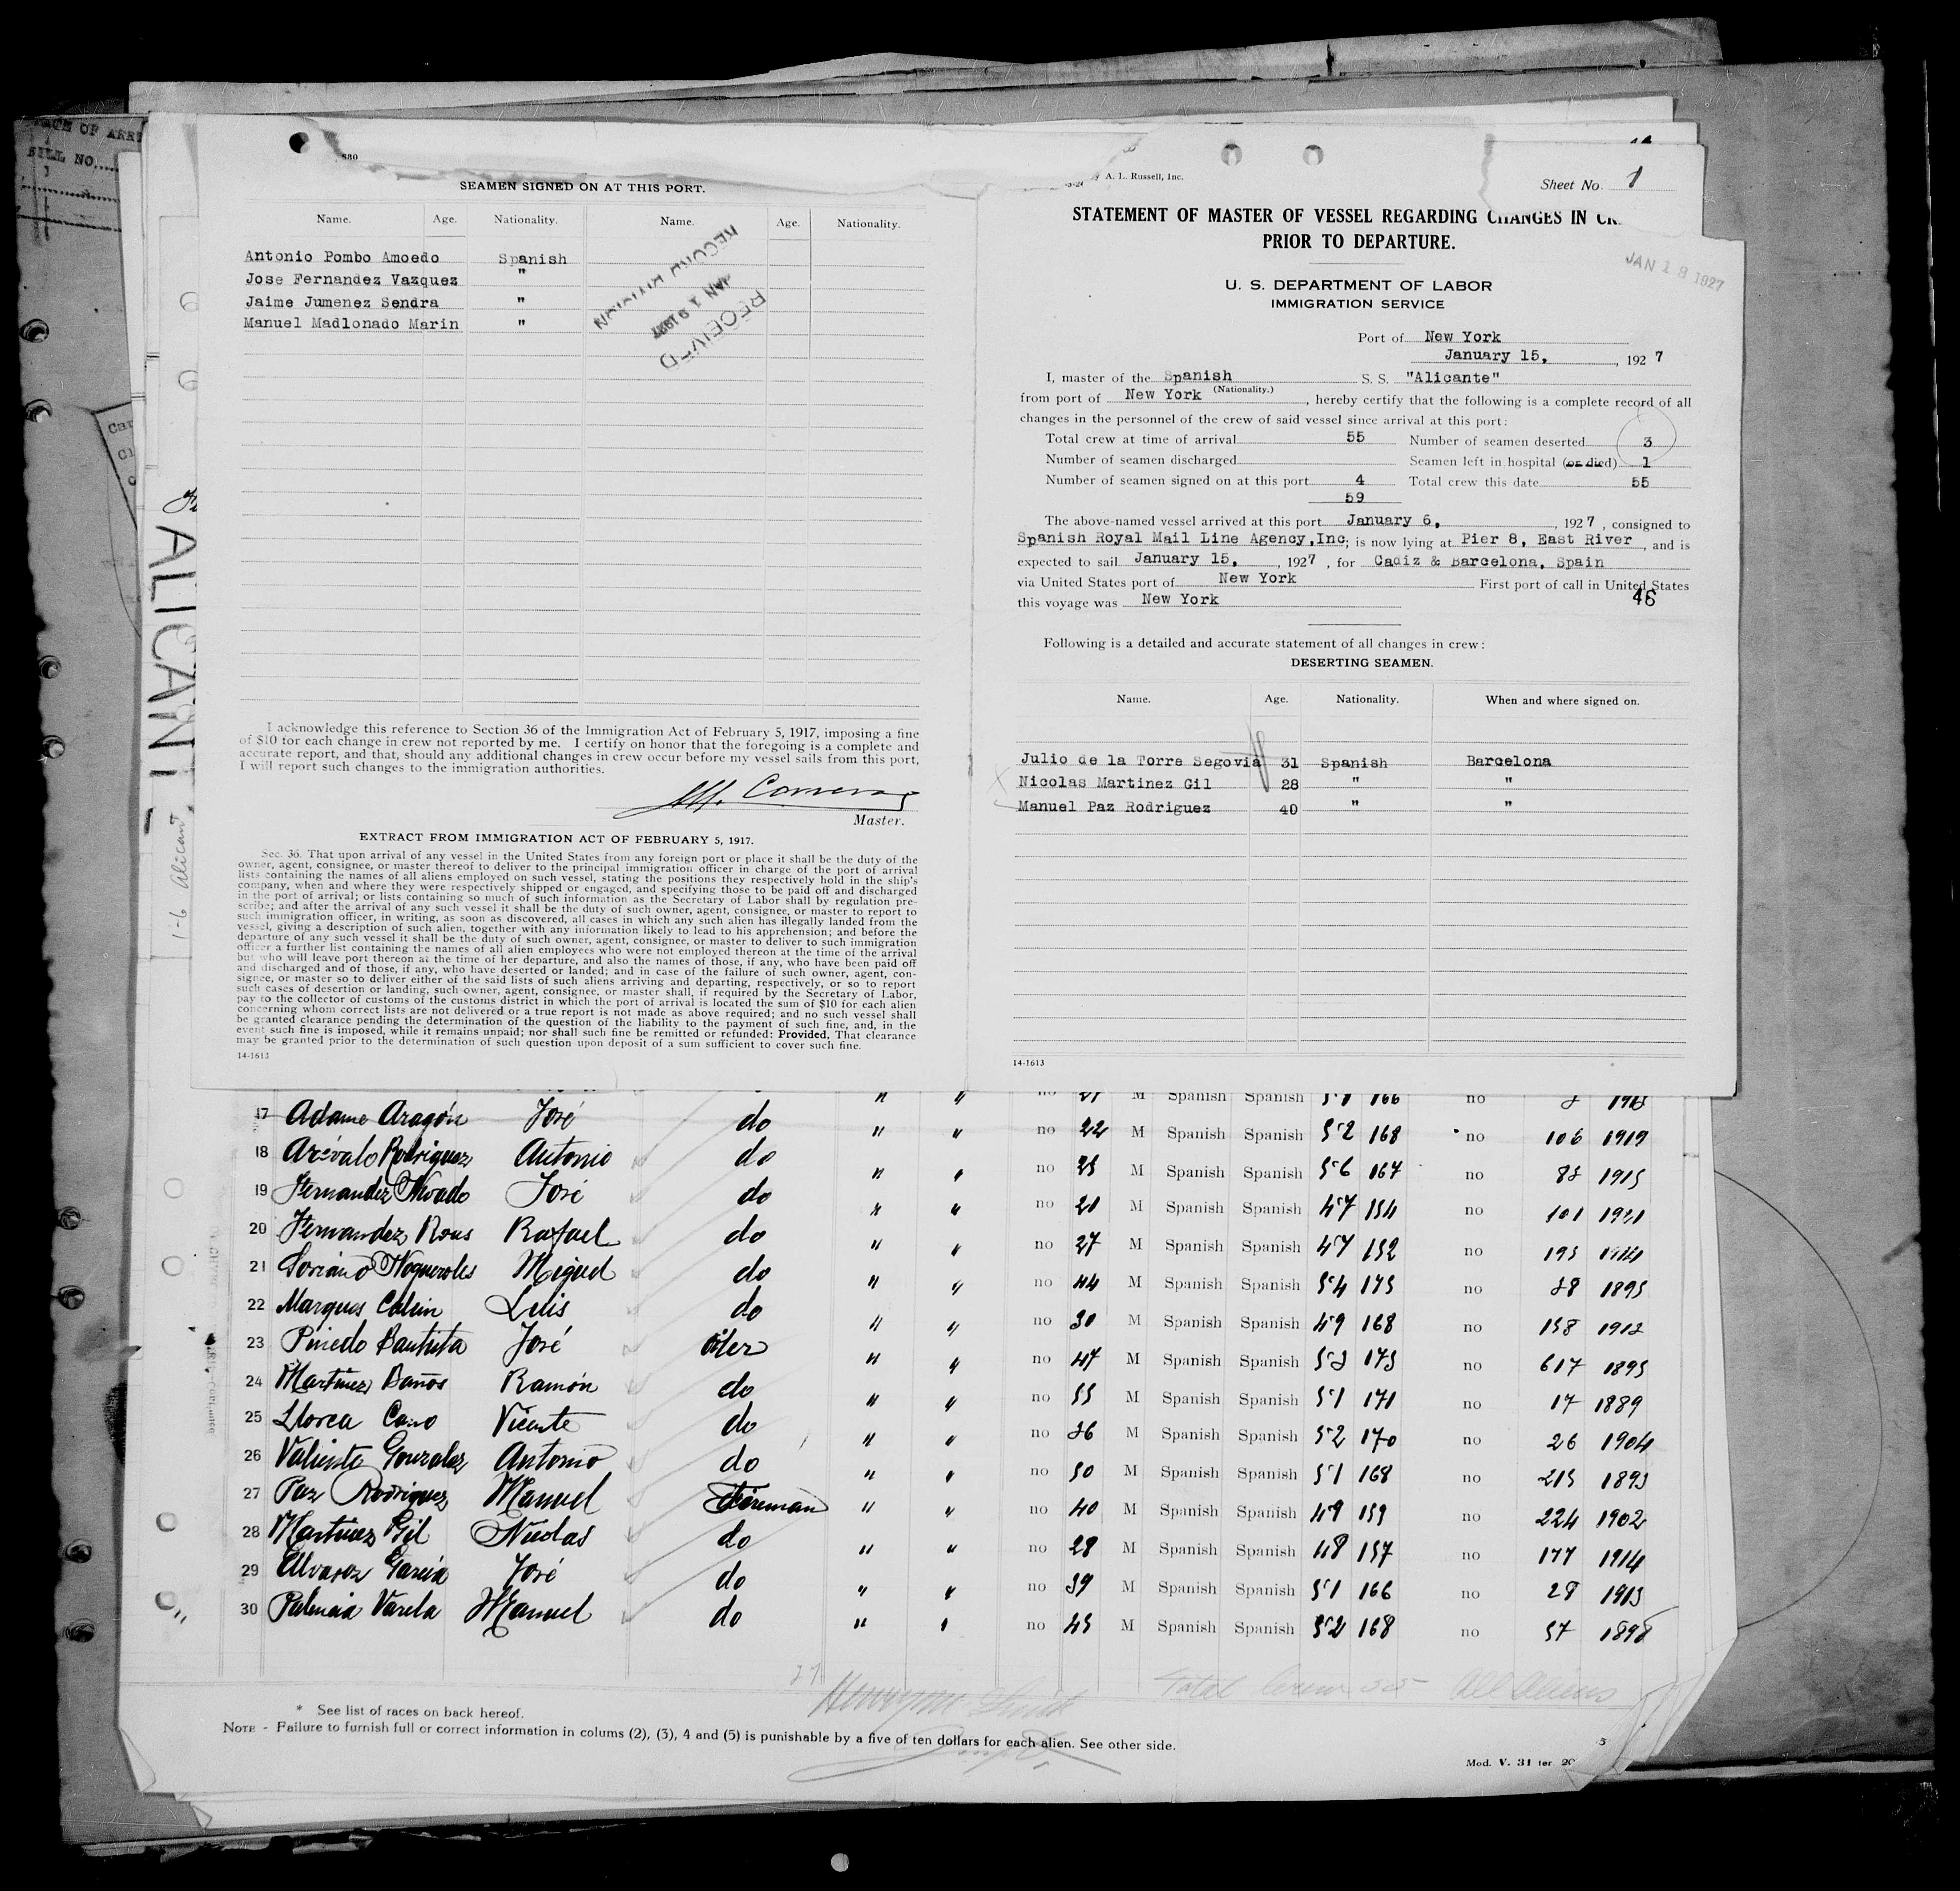 SEAMEN SIGNED ON AT THIS PORT.
Name. Age. Nationality. Name. Age. Nationality.
Antonio Pombo Amoedo Spanish
Jose Fernandez Vazquez "
Jaime Jumenez Sendra "
Manuel Madlonado Marin "
RECEIVED
I acknowledge this reference to Section 36 of the Immigration Act of February 5, 1917, imposing a fine
of $10 for each change in crew not reported by me. I certify on honor that the foregoing is a complete and
accurate report, and that, should any additional changes in crew occur before my vessel sails from this port,
I will report such changes to the immigration authorities.
Master.
EXTRACT FROM IMMIGRATION ACT OF FEBRUARY 5, 1917.
Sec. 36. That upon arrival of any vessel in the United States from any foreign port or place it shall be the duty of the
owner, agent, consignee, or master thereof to deliver to the principal immigration officer in charge of the port of arrival
lists containing the names of all aliens employed on such vessel, stating the positions they respectively hold in the ship's
company, when and where they were respectively shipped or engaged, and specifying those to be paid off and discharged
in the port of arrival; or lists containing so much of such information as the Secretary of Labor shall by regulation pre-
scribe; and after the arrival of any such vessel it shall be the duty of such owner, agent, consignee, or master to report to
such immigration officer, in writing, as soon as discovered, all cases in which any such alien has illegally landed from the
vessel, giving a description of such alien, together with any information likely to lead to his apprehension; and before the
departure of any such vessel it shall be the duty of such owner, agent, consignee, or master to deliver to such immigration
officer a further list containing the names of all alien employees who were not employed thereon at the time of the arrival
but who will leave port thereon at the time of her departure, and also the names of those, if any, who have been paid off
and discharged and of those, if any, who have deserted or landed; and in case of the failure of such owner, agent, con-
signee, or master so to deliver either of the said lists of such aliens arriving and departing, respectively, or so to report
such cases of desertion or landing, such owner, agent, consignee, or master shall, if required by the Secretary of Labor,
pay to the collector of customs of the customs district in which the port of arrival is located the sum of $10 for each alien
concerning whom correct lists are not delivered or a true report is not made as above required; and no such vessel shall
be granted clearance pending the determination of the question of the liability to the payment of such fine, and, in the
event such fine is imposed, while it remains unpaid; nor shall such fine be remitted or refunded: Provided, That clearance
may be granted prior to the determination of such question upon deposit of a sum sufficient to cover such fine.
14-1613
A. L. Russell, Inc.
Sheet No. 1
STATEMENT OF MASTER OF VESSEL REGARDING CHANGES IN
PRIOR TO DEPARTURE.
JAN 18 1927
U. S. DEPARTMENT OF LABOR
IMMIGRATION SERVICE
Port of New York
January 15, , 1927
I, master of the Spanish S. S. "Alicante"
(Nationality.)
from port of New York , hereby certify that the following is a complete record of all
changes in the personnel of the crew of said vessel since arrival at this port:
Total crew at time of arrival 55 Number of seamen deserted 3
Number of seamen discharged Seamen left in hospital (or died) 1
Number of seamen signed on at this port 4 Total crew this date 55
59
The above-named vessel arrived at this port January 6, , 1927 , consigned to
Spanish Royal Mail Line Agency,Inc; is now lying at Pier 8, East River , and is
expected to sail January 15, , 1927 , for Cadiz & Barcelona, Spain
via United States port of New York First port of call in United States
this voyage was New York 46
Following is a detailed and accurate statement of all changes in crew:
DESERTING SEAMEN.
Name. Age. Nationality. When and where signed on.
Julio de la Torre Segovia 31 Spanish Barcelona
Nicolas Martinez Gil 28 " "
Manuel Paz Rodriguez 40 " "
14-1613
ALICANT
1-6 Alicant
17 Adame Aragón José do " "
18 Arévalo Rodriguez Antonio do " " no 22 M Spanish Spanish 5'2 168 no 106 1919
19 Fernandez José do " " no M Spanish Spanish 5'6 167 no 1915
20 Fernandez Rous Rafael do " " no 21 M Spanish Spanish 4'7 154 no 101 1921
21 Soriano Nogueroles Miguel do " " no 27 M Spanish Spanish 4'7 152 no 193 1914
22 Marques Luis do " " no 44 M Spanish Spanish 5'4 175 no 1895
23 Pinedo Bautista José oiler " " no 30 M Spanish Spanish 4'9 168 no 158 1912
24 Martinez Baños Ramón do " " no 47 M Spanish Spanish 5'3 175 no 617 1895
25 Llorca Cano Vicente do " " no 55 M Spanish Spanish 5'1 171 no 17 1889
26 Valiente Gonzalez Antonio do " " no 36 M Spanish Spanish 5'2 170 no 26 1904
27 Paz Rodriguez Manuel Fireman " " no 50 M Spanish Spanish 5'1 168 no 215 1893
28 Martinez Gil Nicolas do " " no 40 M Spanish Spanish 4'9 159 no 224 1902
29 Alvarez Garcia José do " " no 28 M Spanish Spanish 4'8 157 no 177 1914
30 Palencia Varela Manuel do " " no 39 M Spanish Spanish 5'1 166 no 28 1913
no 45 M Spanish Spanish 5'2 168 no 57 1898
Total Crew 55 All Aliens
* See list of races on back hereof.
NOTE - Failure to furnish full or correct information in colums (2), (3), 4 and (5) is punishable by a five of ten dollars for each alien. See other side.
Mod. V. 31 ter